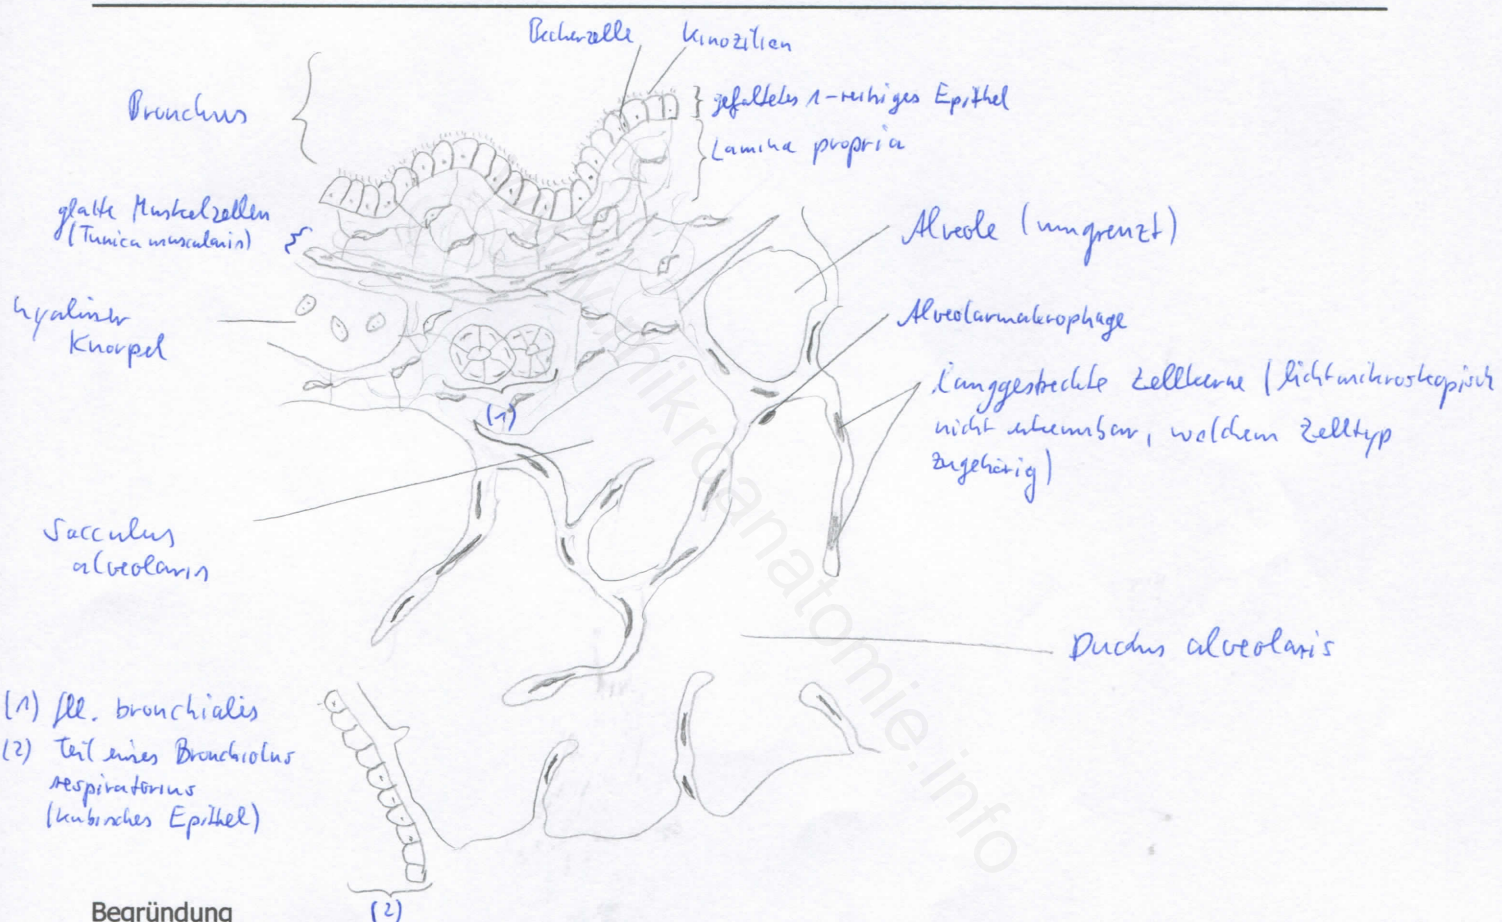 Becherzelle
Kinozilien
Bronchus
gefaltetes 1-reihiges Epithel
Lamina propria
glatte Muskelzellen
(Tunica muscularis)
Alveole (umgrenzt)
hyaliner
Knorpel
Alveolarmakrophage
langgestreckte Zellkerne (lichtmikroskopisch
nicht erkennbar, welchem Zelltyp
zugehörig)
(1)
Sacculus
alveolaris
Ductus alveolaris
(1) Gll. bronchiales
(2) Teil eines Bronchiolus
respiratorius
(kubisches Epithel)
(2)
Begründung
mikroanatomie.info